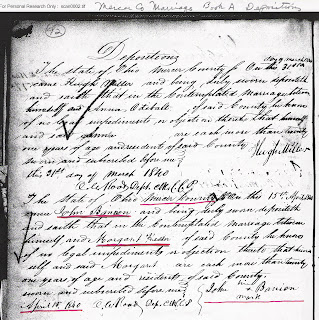 For Personal Research Only - scan0002.tif
Mercer Co Marriage Book A Depositions
(92)
Depositions
The State of Ohio Mercer County On 31st
March 1840
came Hugh Miller and being duly sworn deposeth
and saith that in the Contemplated Marriage between
himself and Anna of said County he knows
of no legal impediments or objection thereto that himself
and said Anna are each more than twenty
one years of age and residents of said County
sworn and subscribed before me Hugh Miller
this 31st day of March 1840
C. A. Rood Dept. Clk C.C.P.
The State of Ohio Mercer County On this 18th April 1840
came John Banion and being duly sworn deposeth
and saith that in the Contemplated Marriage between
himself and Margaret of said County he knows
of no legal impediments or objection thereto that him-
self and said Margaret are each more than twenty
one years of age and residents of said County
sworn and subscribed before me
April 18th 1840 C. A. Rood Dep. Clk
John his x mark Banion